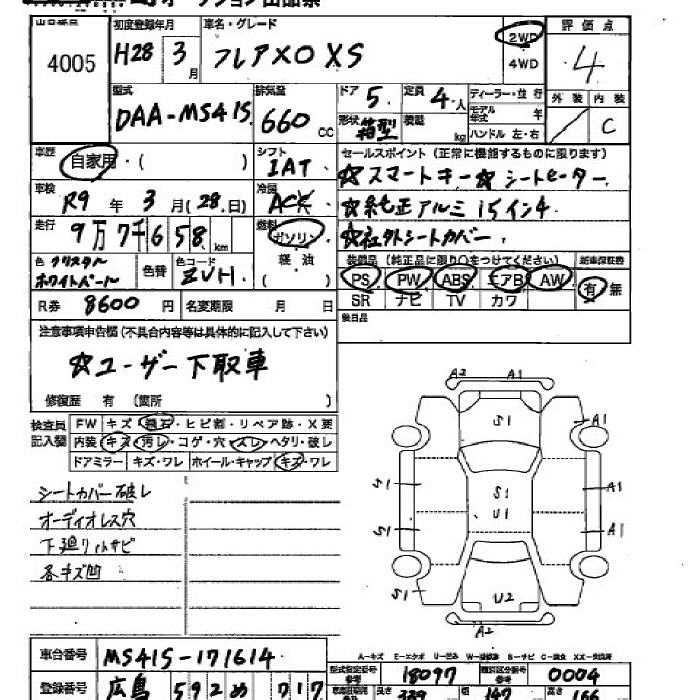 出品番号 初度登録年月 車名・グレード 評価点
4005 H28 3月 フレアXO XS 2WD 4WD 4
型式 排気量 ドア 5. 定員 4.人 ディーラー・並行 外装 内装
DAA-MS41S. 660cc 形状 箱型 積載 kg モデル年式 年 C
ハンドル 左・右
車歴 自家用・( ) シフト IAT. セールスポイント (正常に機能するものに限ります)
車検 R9年 3月(28.日) 冷房 ☆スマートキー☆シートヒーター.
☆純正アルミ15インチ
走行 9万7千658.km 燃料 ガソリン ☆社外シートカバー.
色 クリスタルホワイトパール 色替 色コード ZVH. 軽油 ( )
装備品 (純正品に限り○をつけてください) 新車保証書
PS PW ABS エアB AW 有・無
SR ナビ TV カワ
R券 8600円 名変期限 月 日 後日品
注意事項申告欄(不具合内容等は具体的に記入して下さい)
☆ユーザー下取車
修復歴 有 (箇所 )
検査員記入欄 FW キズ・飛石・ヒビ割・リペア跡・X要
内装 キズ・汚レ・コゲ・穴・スレ・ヘタリ・破レ
ドアミラー キズ・ワレ ホイール・キャップ キズ・ワレ
A2 A1
S1 A1
シートカバー破レ S1 S1 A1
オーディオレス穴 U1
下廻りサビ S1 A1
各キズ凹
S1 U2
A2
A-キズ E-エクボ U-凹み W-補修跡 S-サビ C-腐食 XX-交換済
車台番号 MS41S-171614 型式指定番号 参考 18097 類別区分番号 参考 0004
登録番号 広島 592め 717 339 147 高さ 166